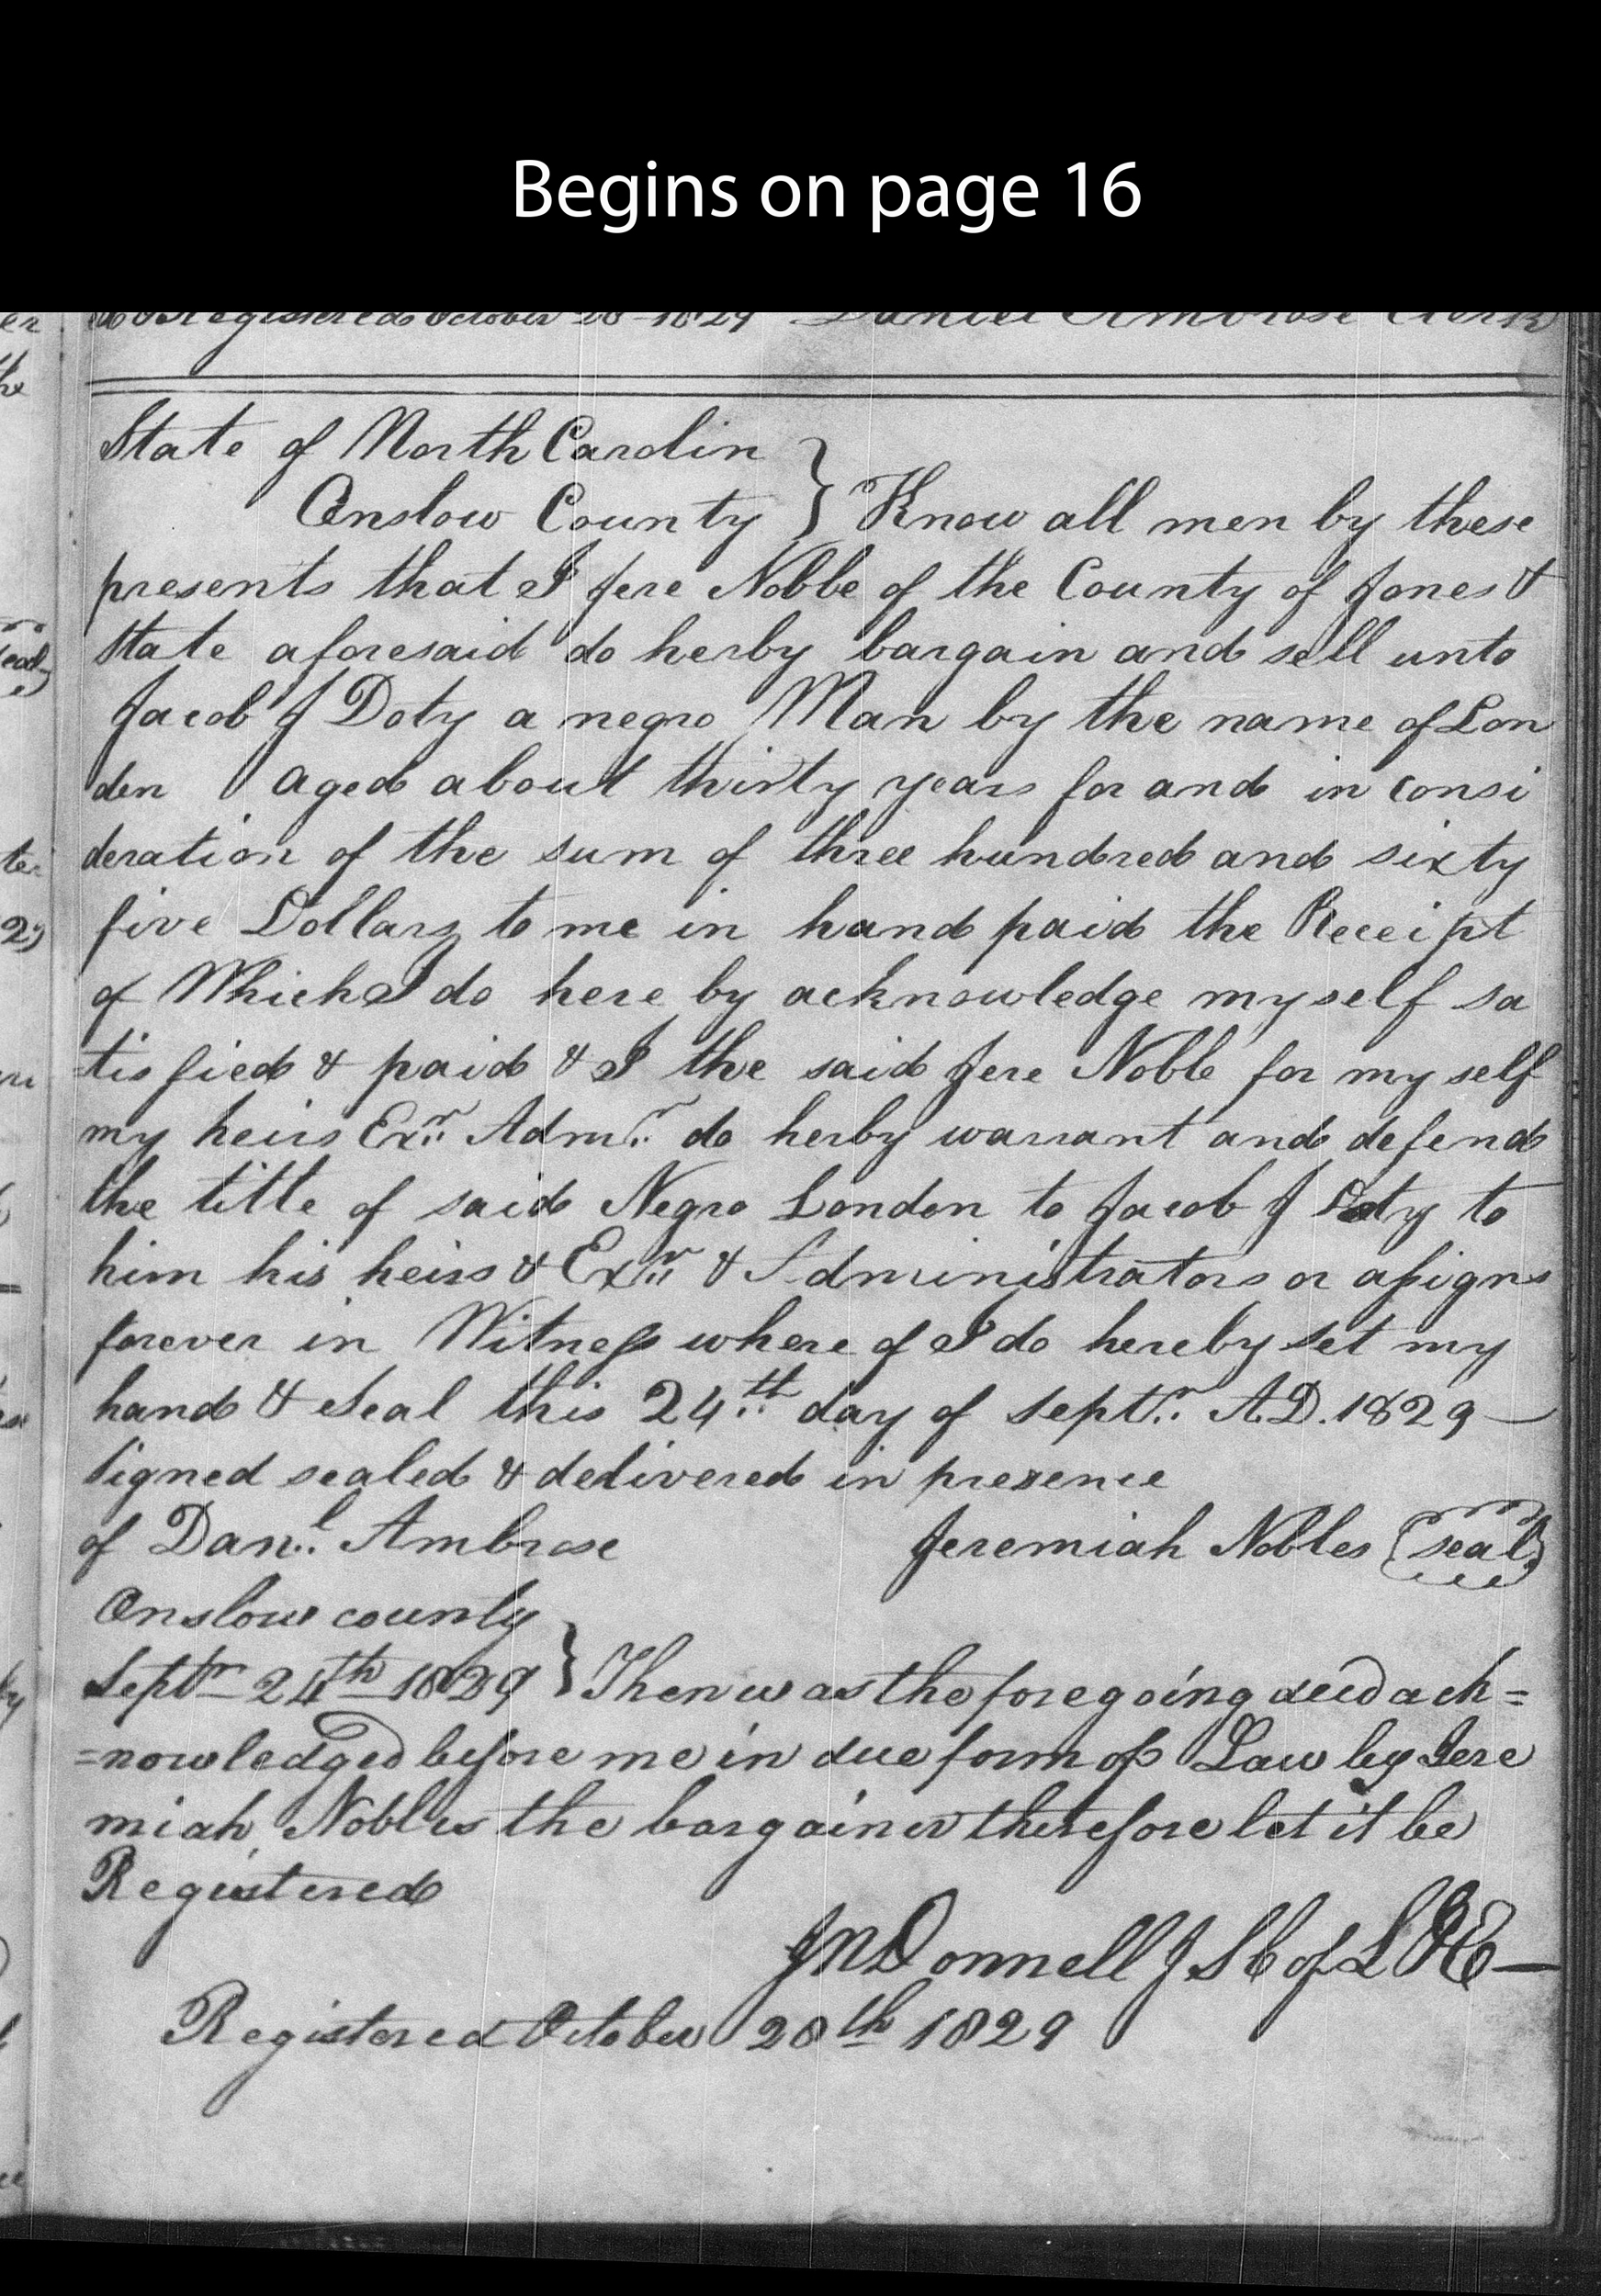 Begins on page 16
Registered October 28 1829 Daniel Ambrose Clerk
State of North Carolin
Onslow County } Know all men by these
presents that I Jere Noble of the County of Jones &
State aforesaid do herby bargain and sell unto
Jacob J Doty a negro Man by the name of Lon
den aged about thirty years for and in consi
deration of the sum of three hundred and sixty
five Dollars to me in hand paid the Receipt
of Which I do here by acknowledge my self sa
tisfied & paid & I the said Jere Noble for my self
my heirs Exr. Admr. do herby warrant and defend
the title of said Negro London to Jacob J Doty to
him his heirs & Exr. & Administrators or assigns
forever in Witness where of I do hereby set my
hand & Seal this 24th day of Septr. A.D. 1829
Signed sealed & delivered in presence
of Danl. Ambrose Jeremiah Nobles (seal)
Onslow county
Septr 24th 1829 } Then was the foregoing deed ack=
=nowledged before me in due form of Law by Jere
miah Nobles the bargainer therefore let it be
Registered
JRDonnell J S C of L & E
Registered October 28th 1829